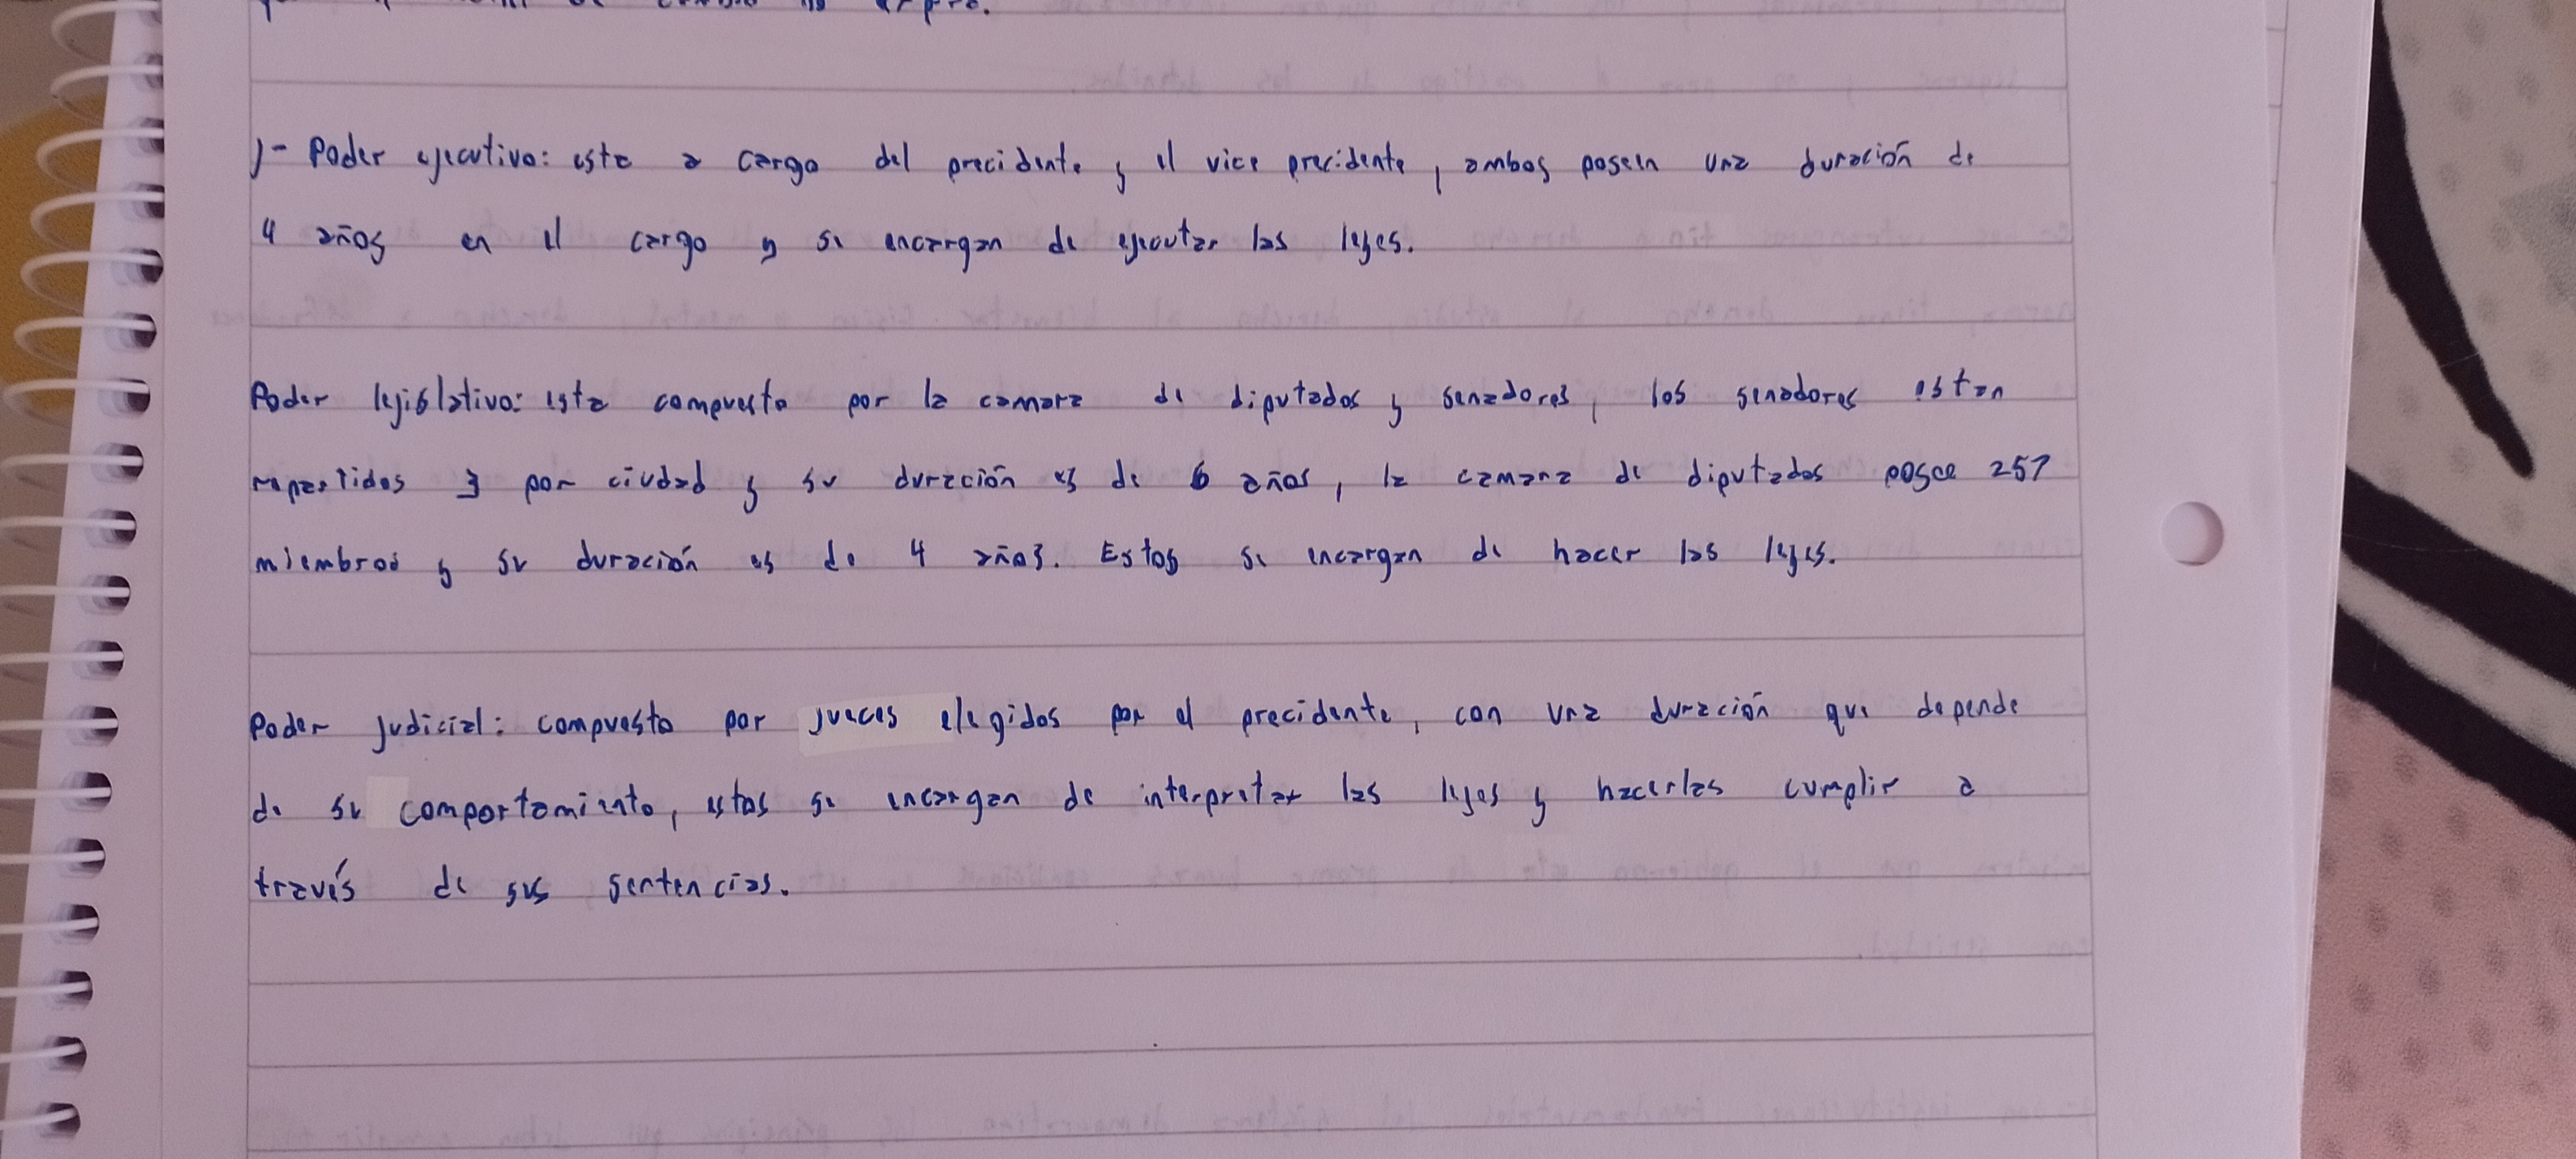 J- Poder ejecutivo: esta a cargo del precidente y el vice precidente, ambos poseen una duración de
4 años en el cargo y se encargan de ejecutar las leyes.
Poder legislativo: esta compuesto por la camara de diputados y senadores, los senadores estan
repartidos 3 por ciudad y su duración es de 6 años, la camara de diputados posee 257
miembros y su duración es de 4 años. Estos se encargan de hacer las leyes.
Poder judicial: compuesto por jueces elegidos por el precidente, con una duración que depende
de su comportamiento, estos se encargan de interpretar las leyes y hacerlas cumplir a
través de sus sentencias.